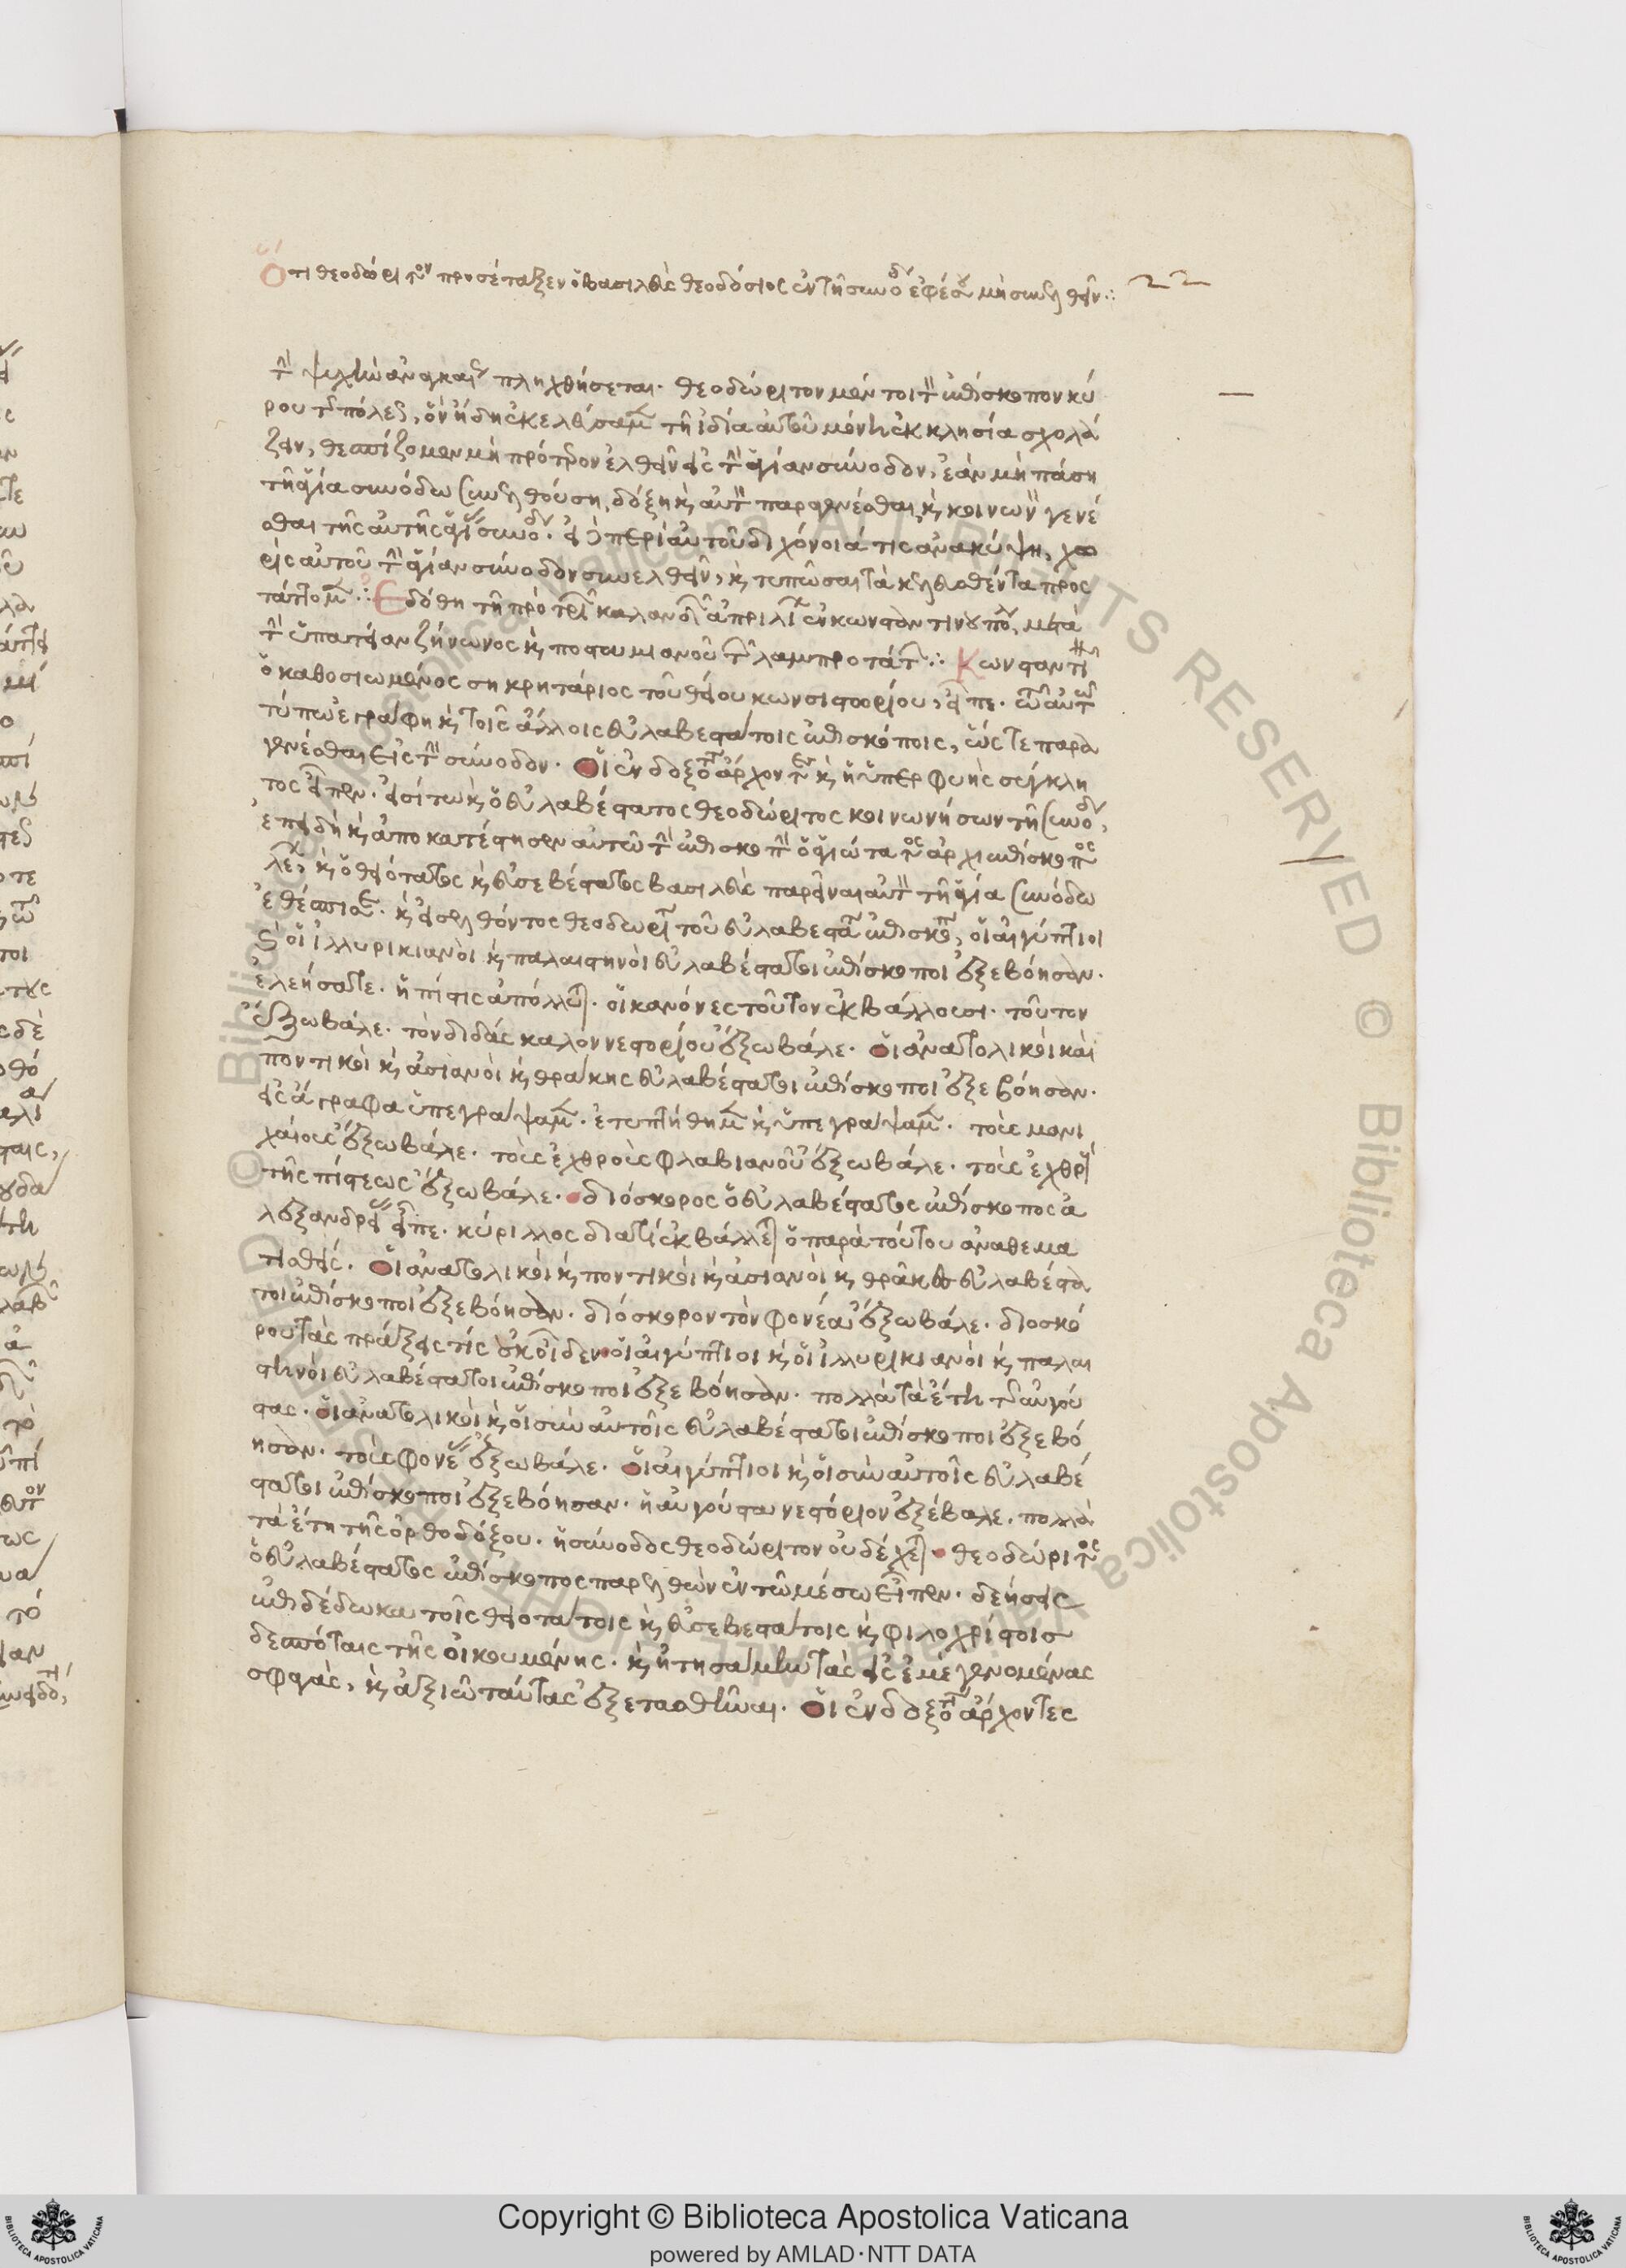 Ὅτι θεοδώριτον προσέταξεν ὁ βασιλεὺς θεοδόσιος ἐν τῇ συνόδῳ ἐφέσου μὴ συνελθεῖν ∴
τὴν ψυχὴν ἀναγκαίως πληχθήσεται. θεοδώριτον μέντοι τὸν ἐπίσκοπον κύ
ρου τῆς πόλεως, ὃν ἤδη ἐκελεύσαμεν τῇ ἰδία αὐτοῦ μόνη ἐκκλησία σχολά
ζειν, θεσπίζομεν μὴ πρότερον ἐλθεῖν εἰς τὴν ἁγίαν σύνοδον, ἐὰν μὴ πάση
τῇ ἁγία συνόδω συνελθούση, δόξη καὶ αὐτὸν παραγενέσθαι, καὶ κοινωνὸν γενέ
σθαι τῆς αὐτῆς ἁγίας συνόδου. εἰ δὲ περὶ αὐτοῦ διχόνοιά τις ἀνακύψη, χω
ρὶς αὐτοῦ τὴν ἁγίαν σύνοδον συνελθεῖν, καὶ τυπῶσαι τὰ κελευσθέντα προσ
τάττομεν ∴ Ἐδόθη τῇ πρὸ τριῶν καλανδῶν ἀπριλίων ἐν κωνσταντινουπόλει, μετὰ
τὴν ὑπατείαν ζήνωνος καὶ ποστουμιανοῦ τῶν λαμπροτάτων ∴ Κωνσταντῖνος
ὁ καθοσιωμένος σηκρητάριος τοῦ θείου κωνσιστορίου, εἶπε. τῶ αὐτῶ
τύπω ἐγράφη καὶ τοῖς ἄλλοις εὐλαβεστάτοις ἐπισκόποις, ὥστε παρα
γενέσθαι εἰς τὴν σύνοδον. Οἱ ἐνδοξότατοι ἄρχοντες καὶ ἡ ὑπερφυὴς σύγκλη
τος εἶπεν. εἰσίτω καὶ ὁ εὐλαβέστατος θεοδώριτος κοινωνήσων τῇ συνόδω,
ἐπειδὴ καὶ ἀποκατέστησεν αὐτῶ τὴν ἐπισκοπὴν ὁ ἁγιώτατος ἀρχιεπίσκοπος
λέων, καὶ ὁ θειότατος καὶ εὐσεβέστατος βασιλεὺς παρεῖναι αὐτὸν τῇ ἁγία συνόδω
ἐθέσπισε. καὶ εἰσελθόντος θεοδωρίτου τοῦ εὐλαβεστάτου ἐπισκόπου, οἱ αἰγύπτιοι
καὶ οἱ ἰλλυρικιανοὶ καὶ παλαιστηνοὶ εὐλαβέστατοι ἐπίσκοποι ἐξεβόησαν.
ἐλεήσατε. ἡ πίστις ἀπόλλυται. οἱ κανόνες τοῦτον ἐκβάλλουσι. τοῦτον
ἔξω βάλε. τὸν διδάσκαλον νεστορίου ἔξω βάλε. Οἱ ἀνατολικοὶ καὶ
ποντικοὶ καὶ ἀσιανοὶ καὶ θράκης εὐλαβέστατοι ἐπίσκοποι ἐξεβόησαν.
εἰς ἄγραφα ὑπεγράψαμεν. ἐτυπτήθημεν καὶ ὑπεγράψαμεν. τοὺς μανι
χαίους ἔξω βάλε. τοὺς ἐχθροὺς φλαβιανοῦ ἔξω βάλε. τοὺς ἐχθροὺς
τῆς πίστεως ἔξω βάλε. διόσκορος ὁ εὐλαβέστατος ἐπίσκοπος ἀ
λεξανδρείας εἶπε. κύριλλος διατί ἐκβάλλεται ὁ παρὰ τούτου ἀναθεμα
τισθείς. Οἱ ἀνατολικοὶ καὶ ποντικοὶ καὶ ἀσιανοὶ καὶ θρᾶκες εὐλαβέστα
τοι ἐπίσκοποι ἐξεβόησαν. διόσκορον τὸν φονέα ἔξω βάλε. διοσκό
ρου τὰς πράξεις τίς οὐκ οἶδεν. οἱ αἰγύπτιοι καὶ οἱ ἰλλυρικιανοὶ καὶ παλαι
στηνοὶ εὐλαβέστατοι ἐπίσκοποι ἐξεβόησαν. πολλὰ τὰ ἔτη τῆς αὐγού
στας. Οἱ ἀνατολικοὶ καὶ οἱ σὺν αὐτοῖς εὐλαβέστατοι ἐπίσκοποι ἐξεβό
ησαν. τοὺς φονέας ἔξω βάλε. Οἱ αἰγύπτιοι καὶ οἱ σὺν αὐτοῖς εὐλαβέ
στατοι ἐπίσκοποι ἐξεβόησαν. ἡ αὐγούστα νεστόριον ἐξέβαλε. πολλὰ
τὰ ἔτη τῆς ὀρθοδόξου. ἡ σύνοδος θεοδώριτον οὐ δέχεται. θεοδώριτος
ὁ εὐλαβέστατος ἐπίσκοπος παρελθὼν ἐν τῶ μέσω εἶπεν. δεήσεις
ἐπιδέδωκα τοῖς θειοτάτοις καὶ εὐσεβεστάτοις καὶ φιλοχρίστοις
δεσπόταις τῆς οἰκουμένης. καὶ ἠτησάμην τὰς εἰς ἐμὲ γενομένας
σφαγάς, καὶ ἀξιῶ ταύτας ἐξετασθῆναι. Οἱ ἐνδοξότατοι ἄρχοντες
© Biblioteca Apostolica Vaticana ALL RIGHTS RESERVED
Copyright © Biblioteca Apostolica Vaticana
powered by AMLAD·NTT DATA